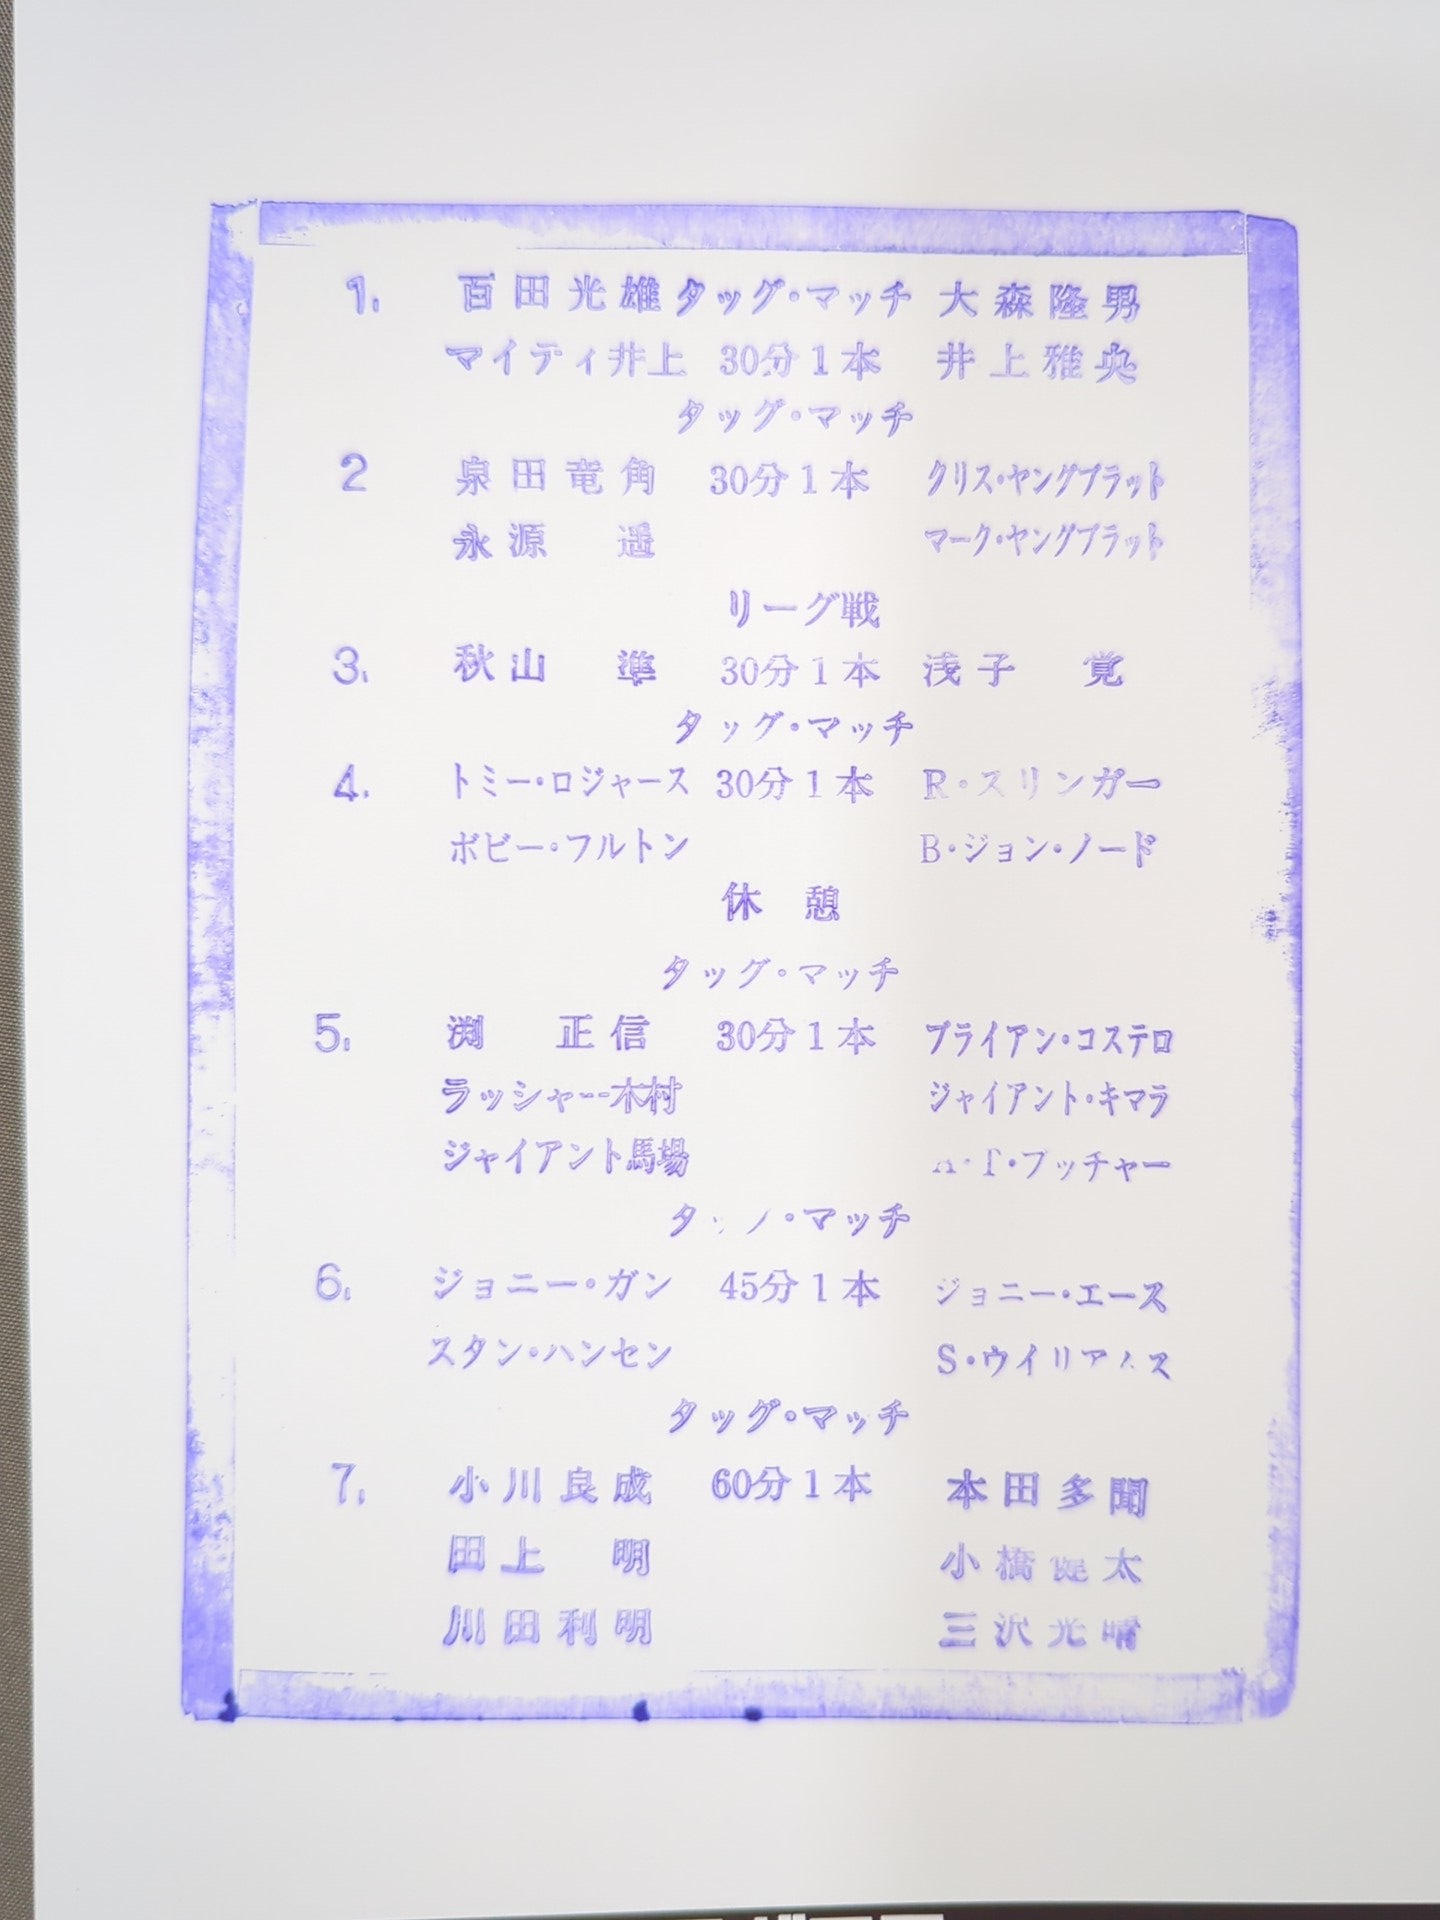 1. 百田光雄 タッグ・マッチ 大森隆男
マイティ井上 30分1本 井上雅央
タッグ・マッチ
2 泉田竜角 30分1本 クリス・ヤングブラット
永源 遥 マーク・ヤングブラット
リーグ戦
3. 秋山 準 30分1本 浅子 覚
タッグ・マッチ
4. トミー・ロジャース 30分1本 R・スリンガー
ボビー・フルトン B・ジョン・ノード
休憩
タッグ・マッチ
5. 渕 正信 30分1本 ブライアン・コステロ
ラッシャー木村 ジャイアント・キマラ
ジャイアント馬場 A・T・ブッチャー
タッグ・マッチ
6. ジョニー・ガン 45分1本 ジョニー・エース
スタン・ハンセン S・ウイリアムス
タッグ・マッチ
7. 小川良成 60分1本 本田多聞
田上 明 小橋健太
川田利明 三沢光晴